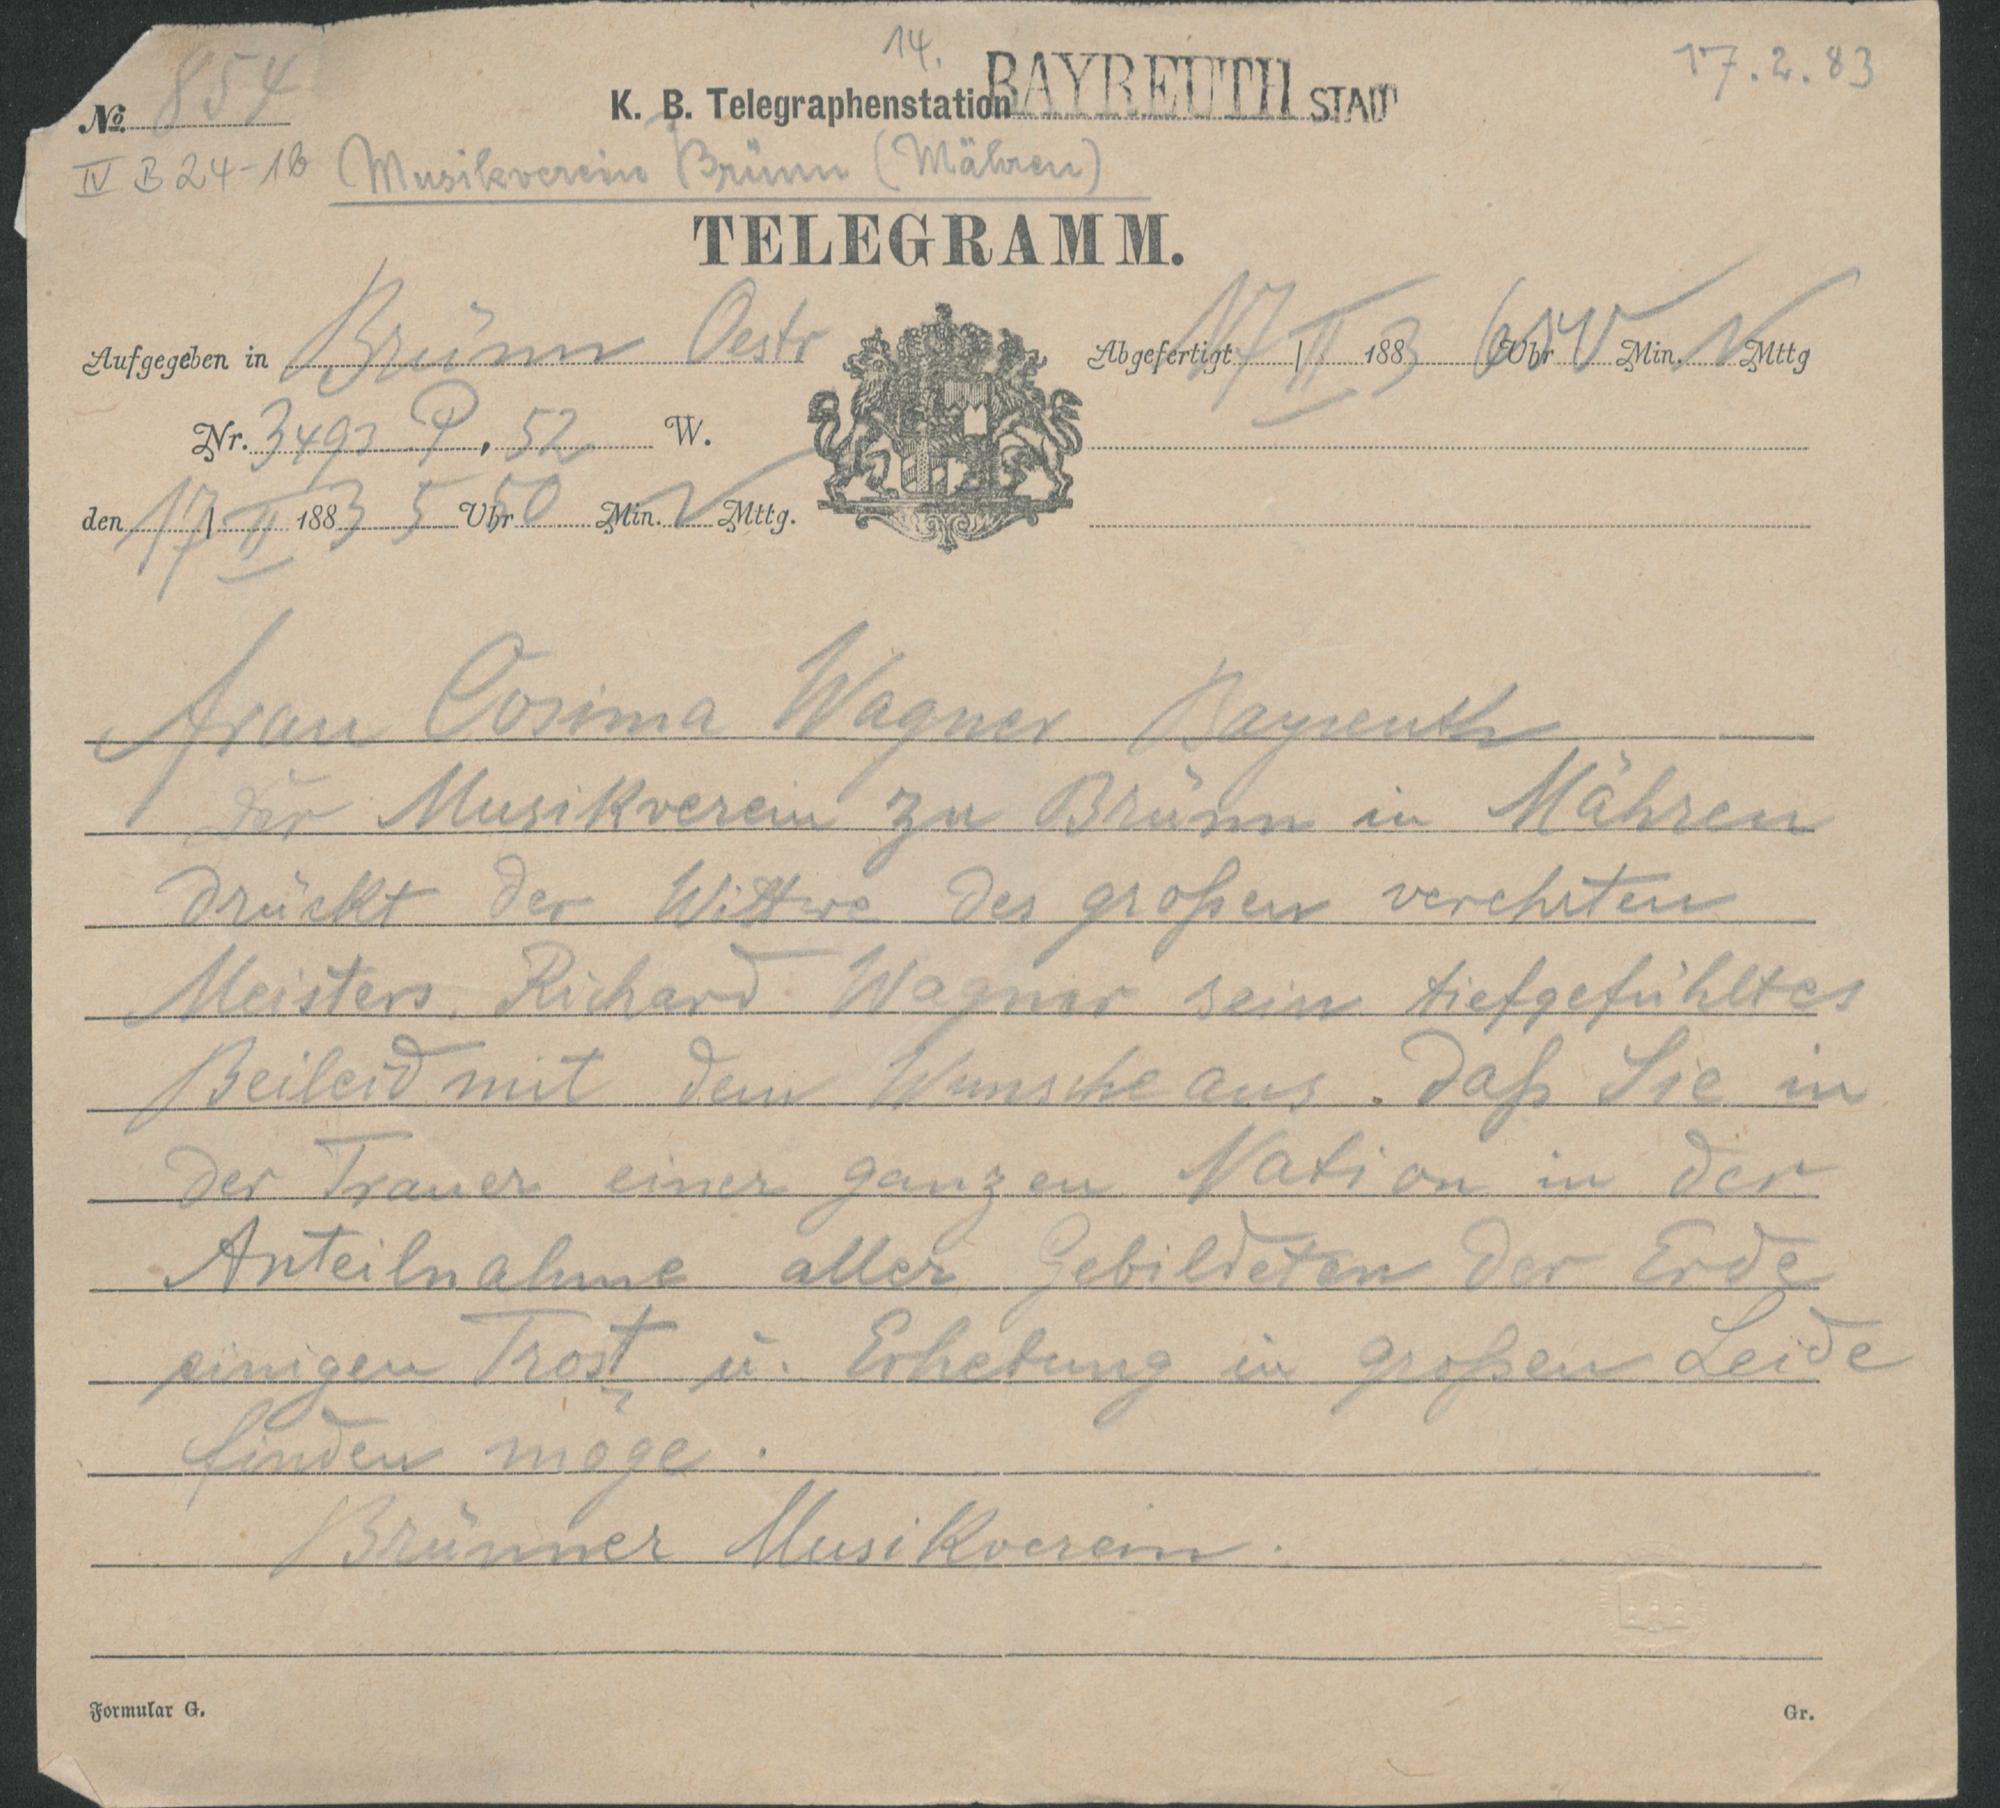 14.
17.2.83
№ 854
K. B. Telegraphenstation BAYREUTH STADT
IV B 24-16 Musikverein Brünn (Mähren)
TELEGRAMM.
Aufgegeben in Brünn Oestr
Abgefertigt 17 / II 1883 Uhr Min. N Mttg
Nr. 3493 P, 52 W.
den 17 / II 1883 5 Uhr 50 Min. N Mttg.
Frau Cosima Wagner Bayreuth
Der Musikverein zu Brünn in Mähren
drückt der Wittwe des großen verehrten
Meisters Richard Wagner sein tiefgefühltes
Beileid mit dem Wunsche aus. daß Sie in
der Trauer einer ganzen Nation in der
Anteilnahme aller Gebildeten der Erde
einigen Trost u. Erhebung in großen Leide
finden möge.
Brünner Musikverein.
Formular G.
Gr.